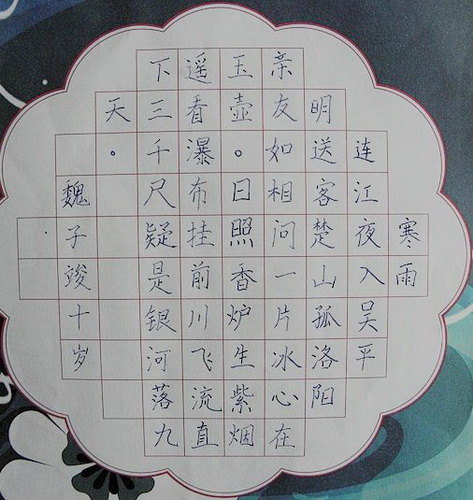 寒雨
连江夜入吴平
明送客楚山孤洛阳
亲友如相问一片冰心在
玉壶。日照香炉生紫烟
遥看瀑布挂前川飞流直
下三千尺疑是银河落九
天。
魏子竣十岁